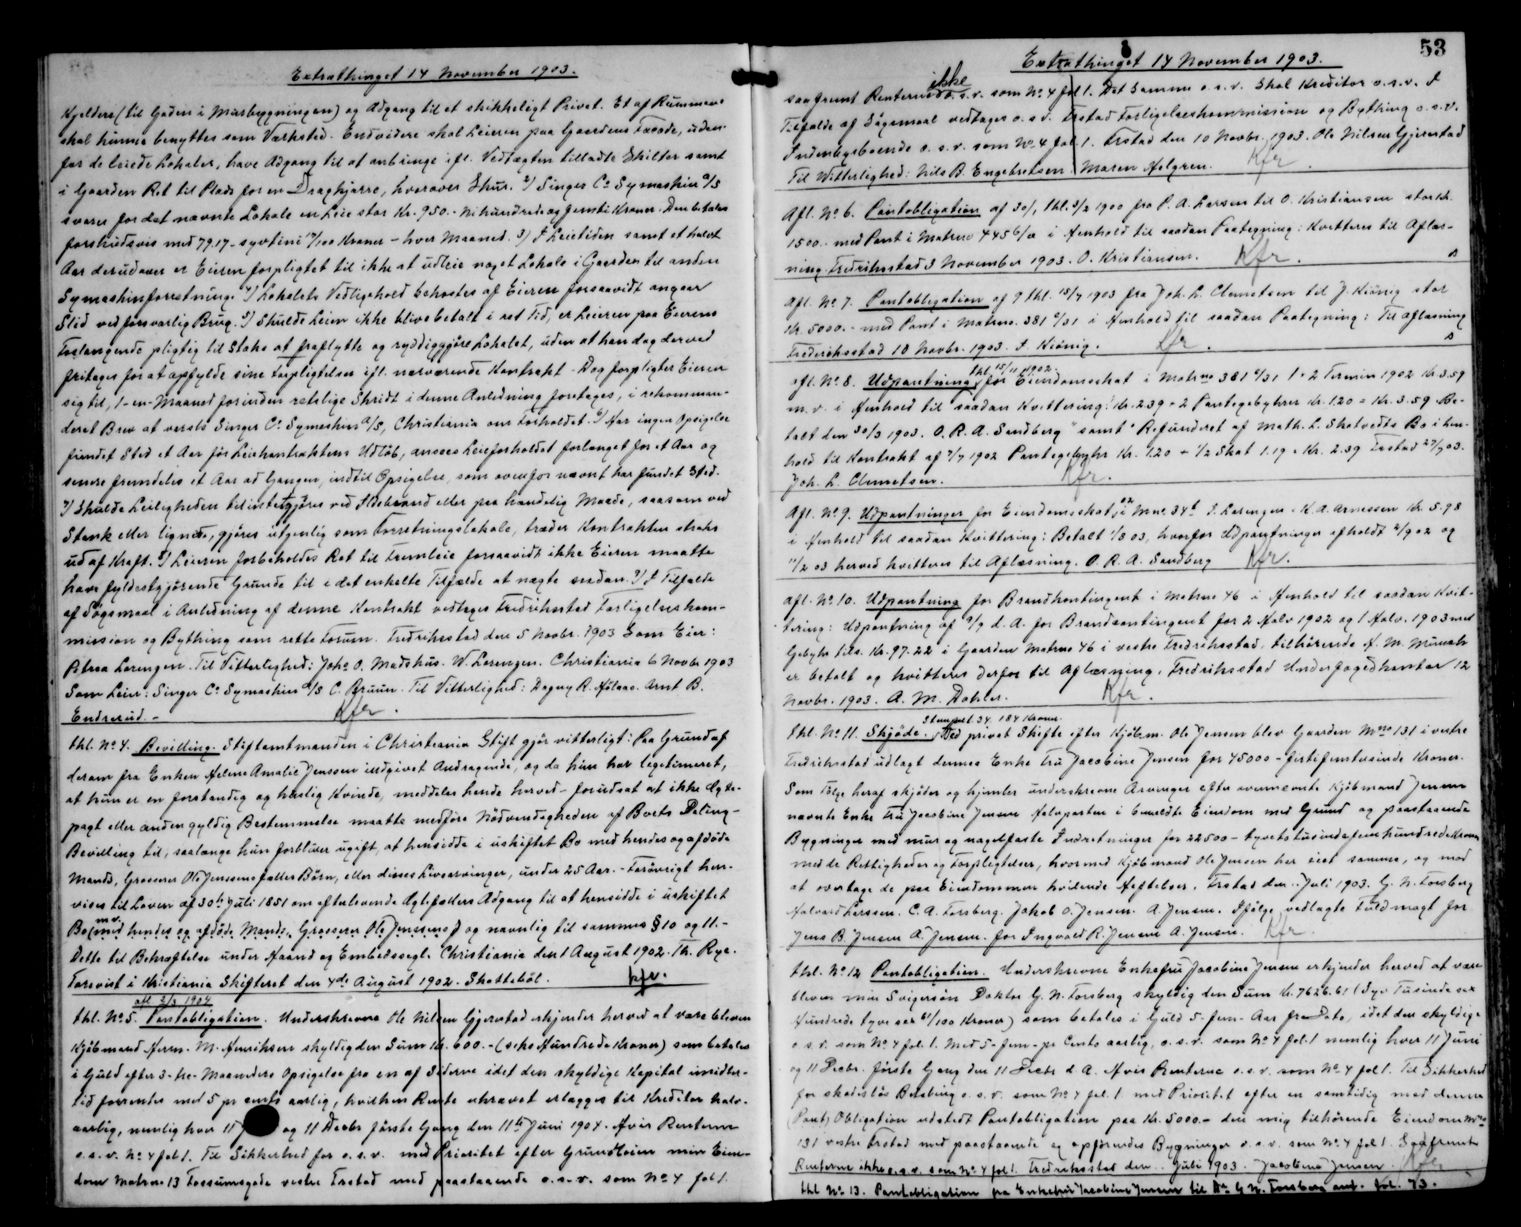 Extrathinget 14 November 1903.
Kjeldere (til Gaden i Mursbygningen) og Adgang til et skikkeligt Privet. Et af Rummene
skal kunne benyttes som Værksted. Endvidere skal Leieren paa Gaardens Facade, uden-
for de leiede Lokaler, have Adgang til at anbringe ifl. Vedtægten tilladte Skilter samt
i Gaarden Ret til Plads for en Dragkjærre, hverover Skur. 2) Singer Co Symaskin A/S
svarer for det nævnte Lokale en Leie stor Kr. 950.- Nihundrede og femti Kroner. Den betales
forskudsvis med 79.17 - syvtini 17/100 Kroner - hver Maaned. 3) I Leietiden samt et halvt
Aar derudover er Eieren forpligtet til ikke at udleie noget Lokale i Gaarden til anden
Symaskinforretning. 4) Lokalets Vedligehold bekostes af Eieren forsaavidt angaar
Slid ved forsvarlig Brug. 5) Skulde Leien ikke blive betalt i ret Tid, er Leieren paa Eierens
Forlangende pligtig til Straks at fraflytte og ryddiggjøre Lokalet, uden at han dog derved
fritages for at opfylde sine Forpligtelser ifl. nærværende Kontrakt. Dog forpligter Eieren
sig til, 1 - en - Maaned forinden retslige Skridt i denne Anledning foretages, i rekomman-
deret Brev at varsle Singer Co Symaskin A/S, Christiania om Forholdet. 6) Har ingen Opsigelse
fundet Sted et Aar før Leiekontraktens Udløb, ansees Leieforholdet forlænget for et Aar og
senere fremdeles et Aar ad Gangen, indtil Opsigelse, som ovenfor nævnt har fundet Sted.
7) Skulde Leiligheden tilintetgjøres ved Ildebrand eller paa handelig Maade, saasom ved
Stænk eller lignende, gjøres utjenlig som Forretningslokale, træder Kontrakten straks
ud af Kraft. 8) Leieren forbeholdes Ret til Fremleie forsaavidt ikke Eieren maatte
have fyldestgjørende Grunde til i det enkelte Tilfælde at nægte saadan. 9) I Tilfælde
af Søgsmaal i Anledning af denne Kontrakt vedtages Fredriksstad Forligelseskom-
mission og Bything som rette Forum. Fredriksstad den 5 Novbr. 1903 Som Eier:
Petrea Lorengen. Til Vitterlighed: Johs O. Madshus. W. Lorengen. Christiania 6 Novbr 1903
Som Leier: Singer Co Symaskin A/S C. Bruun. Til Vitterlighed: Dagny R. Arnt B.
Endrerud. - Kfr.
thl. No 4. Bevilling. Stiftamtmanden i Christiania Stift gjør vitterligt: Paa Grund af
derom fra Enken Helene Amalie Jenssen indgivet Andragende, og da hun har legitimeret,
at hun er en forstandig og huslig Kvinde, meddeles hende herved - forudsat at ikke Ægte-
pagt eller anden gyldig Bestemmelse maatte medføre Nødvendigheden af Boets Deling -
Bevilling til, saalænge hun forbliver ugift, at hensidde i uskiftet Bo med hendes og afdøde
Mands, Grosserer Ole Jenssens fælles Børn, eller disses Livsarvinger, under 25 Aar. - Forøvrigt hen-
vises til Loven af 30te Juli 1851 om efterlevende Ægtefællers Adgang til at hensidde i uskiftet
Bo m.v. (med hendes og afdøde Mands, Grosserer Ole Jenssens) og navnlig til sammes § 10 og 11. -
Dette til Bekræftelse under Haand og Embedssegl. Christiania den 1 August 1902. Th. Rye.
Forevist i Kristiania Skifteret den 4de August 1902. Skattebøl. Kfr.
afl 2/3 1904
thl. No 5. Pantobligation. Underskrevne Ole Nilsen Gjerestad erkjender herved at være bleven
Kjøbmand Herm. M. Henriksen skyldig den Sum Kr. 600.- (seks Hundrede Kroner) som betales
i Guld efter 3 - tre - Maaneders Opsigelse fra en af Siderne idet den skyldige Kapital imidler-
tid forrentes med 5 pr cento aarlig, hvilken Rente ukrævet erlægges til Kreditor halv-
aarlig, nemlig hver 11 og 11 Decbr første Gang den 11te Juni 1904. Hvis Renterne
o.s.v. No 4 fol 1. Til Sikkerhed for o.s.v. med Prioritet efter Grundleien min Eien-
dom Matrno 13 Fossumsgade vestre Frstad med paastaaende o.s.v. som No 4 fol 1.
53
Extrathinget 14 November 1903.
saafremt Renterne ikke o.s.v. som No 4 fol 1. Det samme o.s.v. Skal Kreditor o.s.v. I
Tilfælde af Søgsmaal vedtages o.s.v. Frstad Forligelseskommission og Bything o.s.v.
Indenbysboende o.s.v. som No 4 fol 1. Frstad den 10 Novbr. 1903. Ole Nilsen Gjerestad
Til Vitterlighed: Nils B. Engebretsen Maren Helgren. Kfr
Afl. No 6. Pantobligation af 30/1 thl. 3/2 1900 fra P. A. Larsen til O. Kristiansen stor Kr.
1500.- med Pant i Matrno 445 6/a i Henhold til saadan Paategning: Kvitteres til Aflæs-
ning. Fredriksstad 3 November 1903. O. Kristiansen. Kfr.
Afl. No 7. Pantobligation af 9 thl. 15/7 1903 fra Joh. L. Clemetsen til J. Kiønig stor
Kr. 5000.- med Pant i Matrno. 381 a/31 i Henhold til saadan Paategning: Til aflæsning
Fredriksstad 10 Novbr. 1903. J. Kiønig. Kfr.
thl. 15/11 1902
afl. No 8. Udpantning for Eiendomsskat i Matrno 381 a/31 1 + 2 Termin 1902 Kr. 3.59
m.v. i Henhold til saadan Kvittering: Kr. 2.39 + 2 Pantegebyhrer Kr. 1.20 = Kr. 3.59 Be-
talt den 30/3 1903. O. R. A. Sandberg" samt "Refunderet af Math. L. Skotvedts Bo i Hen-
hold til Kontrakt af 7/7 1902 Pantegebyhr Kr. 1.20 + 1/2 Skat 1.19 = Kr. 2.39 Frstad 27/7 03.
Joh. L. Clemetsen. Kfr.
Afl. No 9. Udpantninger for Eiendomsskat 02 i Mno 34d J. Lorengen - K. A. Arnessen Kr. 5.98
i Henhold til saadan Kvittering: Betalt 1/8 03, hvorfor Udpantninger afholdt 2/9 02 og
11/2 03 herved kvitteres til Aflæsning. O. R. A. Sandberg Kfr.
afl. No 10. Udpantning for Brandkontingent i Matrno 46 i Henhold til saadan Kvit-
tering: Udpantning af 9/9 d. A. for Brandcontingent for 2 Halv 1902 og 1 Halv. 1903 med
Gebyhr tils. Kr. 97.22 i Gaarden Matrno 46 i vestre Fredriksstad, tilhørende H. M.
er betalt og kvitteres derfor til Aflæsning. Fredriksstad Underfogedkontor 12
Novbr. 1903. A. M. Dahler. Kfr.
Stemplet 34. 184 Kroner.
thl. No 11. Skjøde. Ved privat Skifte efter Kjøbm. Ole Jensen blev Gaarden Mno 131 i vestre
Fredriksstad udlagt dennes Enke Fru Jacobine Jensen for 45000 - firtifemtusinde Kroner.
Som Følge heraf skjøder og hjemler underskrevne Arvinger efter ovennævnte Kjøbmand Jensen
nævnte Enke Fru Jacobine Jensen Halvparten i bemeldte Eiendom med Grund og paastaaende
Bygninger med mur og nagelfaste Indretninger for 22500 - tyvetotusindefemhundrede Kroner
med de Rettigheder og Forpligtelser, hvormed Kjøbmand Ole Jensen har eiet samme, og mod
at overtage de paa Eiendommen hvilende Heftelser. Frstad den .. Juli 1903. G. N. Forsberg
Halvard Larssen. C. A. Forsberg. Jakob O. Jensen. A. Jensen. Ifølge vedlagte Fuldmagt for
Jens B. Jensen A. Jensen. for Ingvald R. Jensen A. Jensen. Kfr.
thl. No 12 Pantobligation. Underskrevne Enkefru Jacobine Jensen erkjender herved at være
bleven min Svigersøn Doktor G. N. Forsberg skyldig den Sum Kr. 7626.61 (Syv Tusinde sex
Hundrede tyve sex 61/100 Kroner) som betales i Guld 5 - fem - Aar fra Dato, idet den skyldige
o.s.v. som No 4 fol. 1. med 5 - fem - pr Cento aarlig, o.s.v. som No 4 fol. 1 nemlig hver 11 Juni
og 11 Decbr. første Gang den 11 Decbr d. A. Hvis Renterne o.s.v. som No 4 fol 1. Til Sikkerhed
for skadesløs Betaling o.s.v. som No 4 fol. 1 med Prioritet efter en samtidig med denne
(Pant) Obligation udstedt Pantobligation paa Kr. 5000.- den mig tilhørende Eiendom Mno
131 vestre Frstad med paastaaende og opførendes Bygninger o.s.v. som No 4 fol 1. Saafremt
Renterne ikke o.s.v. som No 4 fol 1. Fredriksstad den .. Juli 1903. Jacobine Jensen. Kfr
thl No 13. Pantobligation fra Enkefru Jacobine Jensen til Dr. G. N. Forsberg anf. fol. 73.